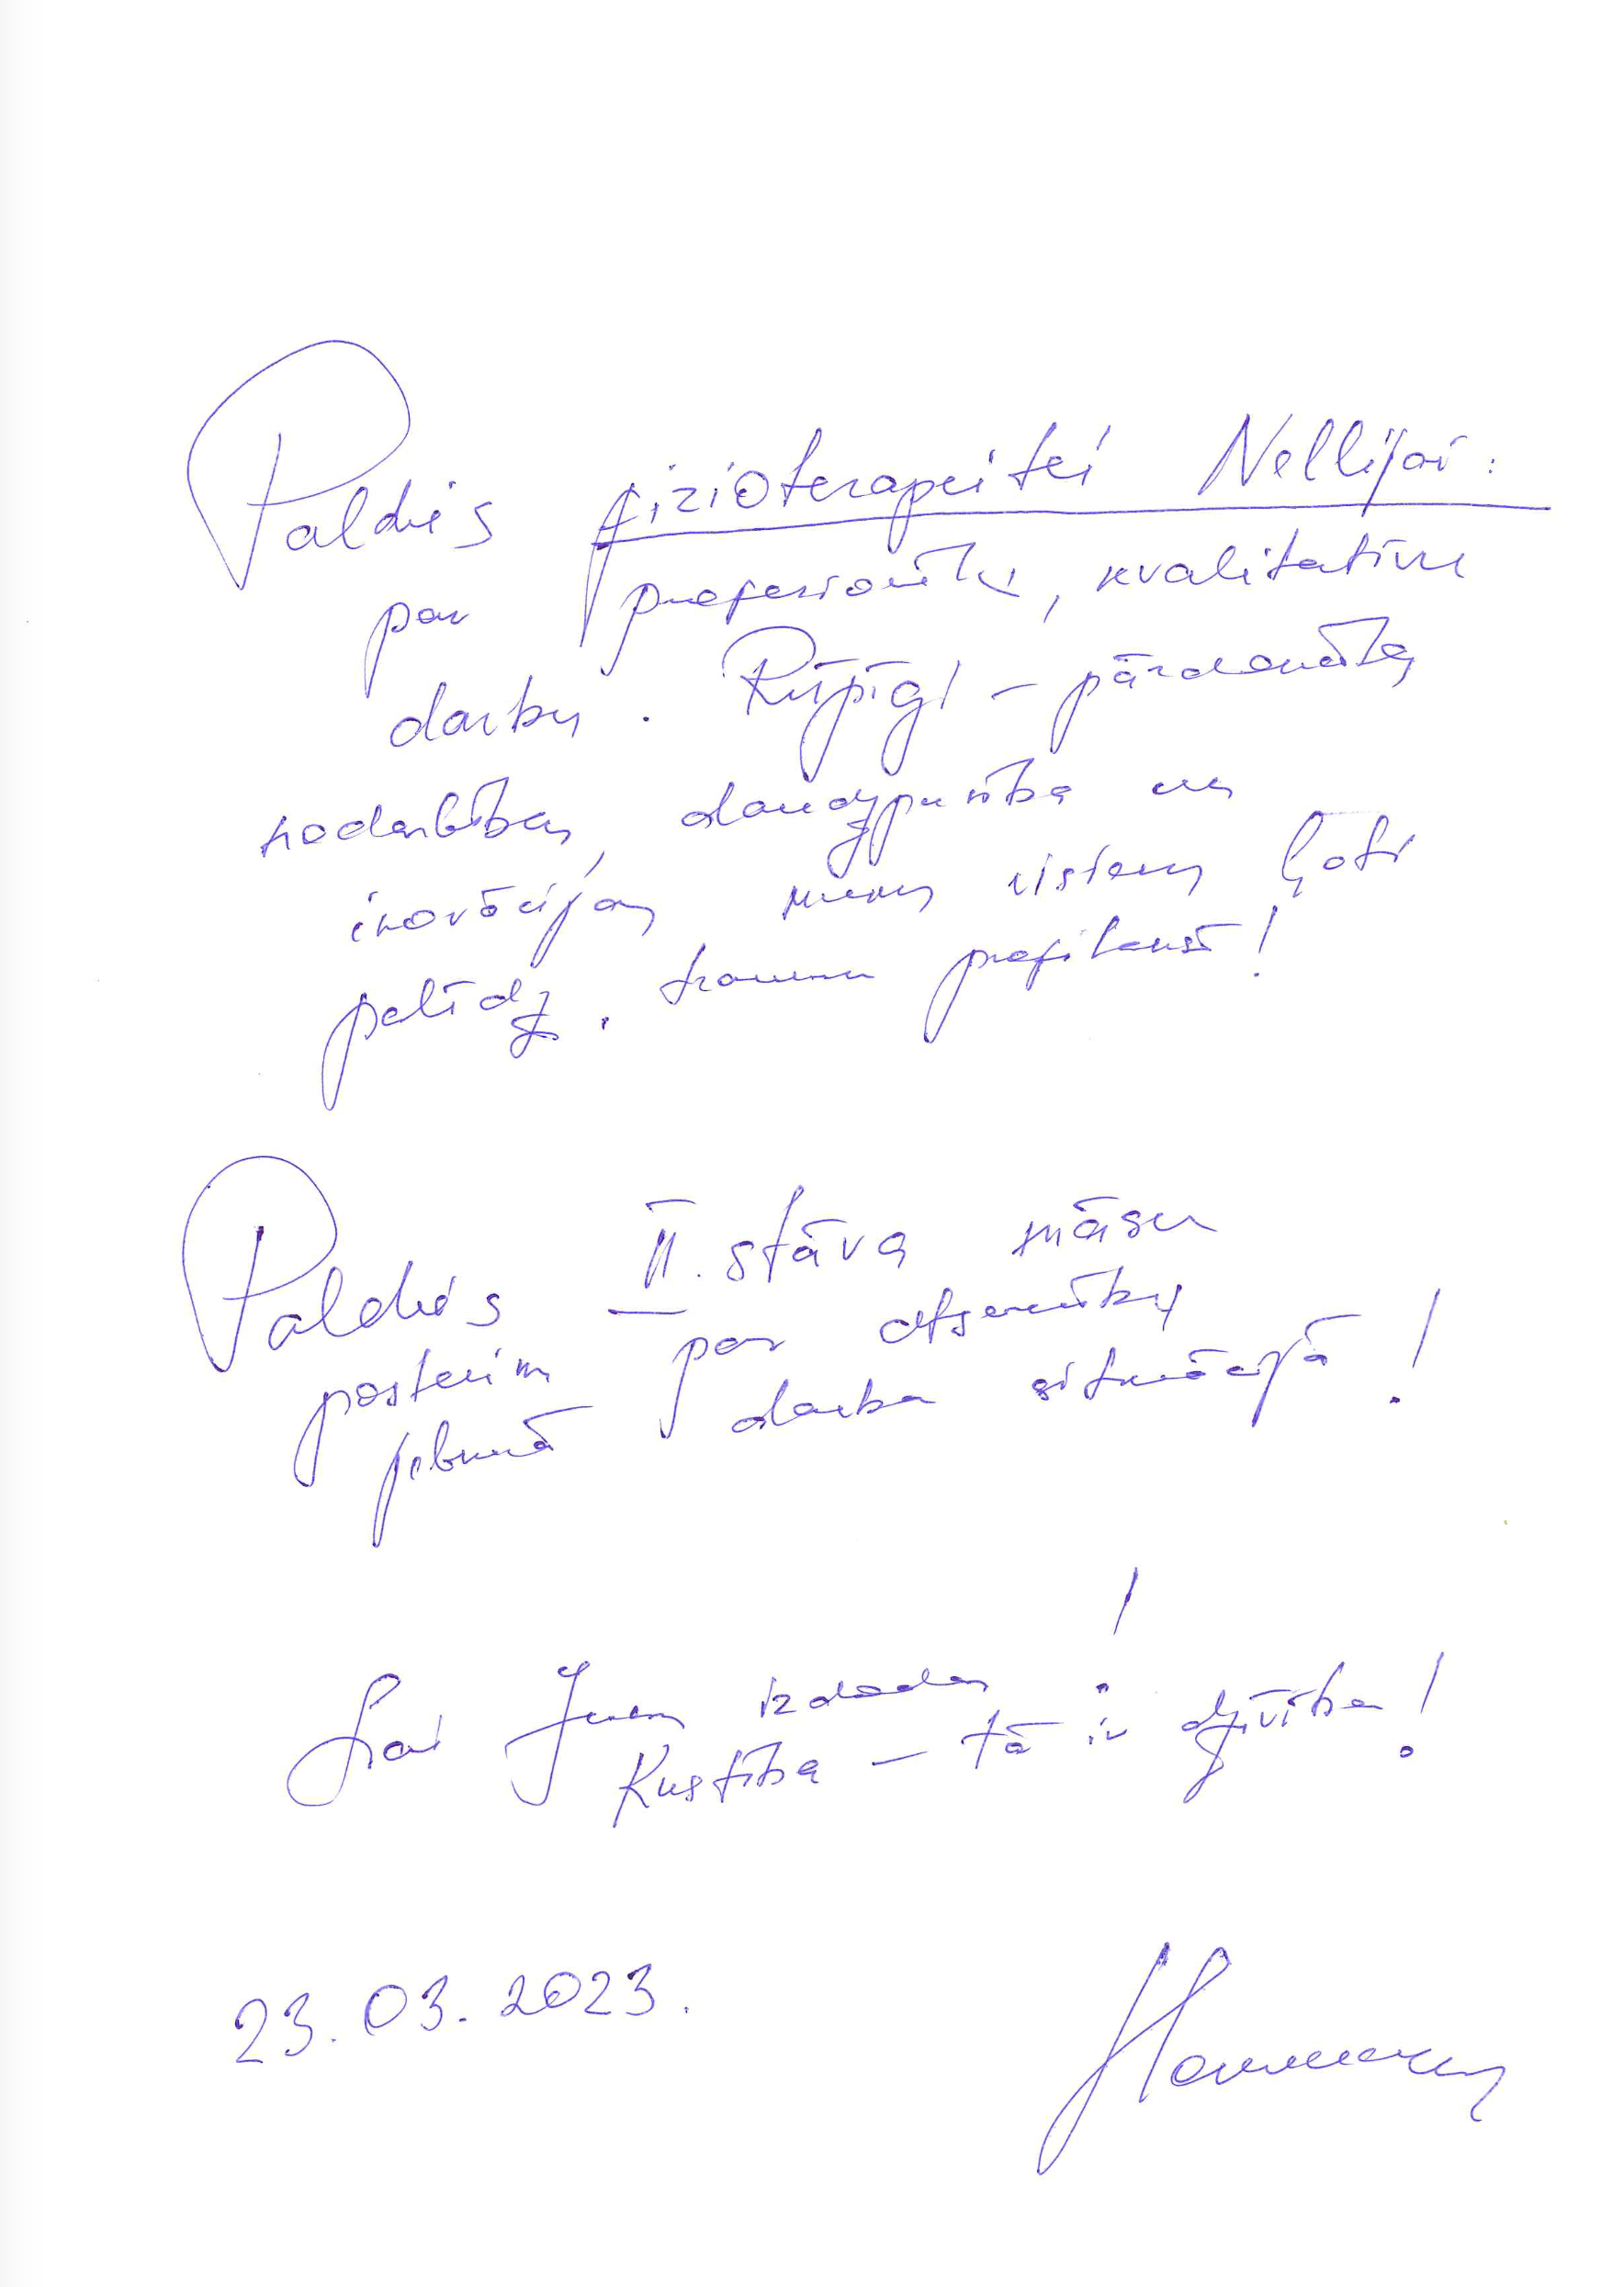 Paldies fizioterapeitei Nellijai:
par profesionālu, kvalitatīvu
darbu. Rūpīgi - pārdomātas
nodarbības, daudzpusība un
inovācijas mums visiem ļoti
palīdz. traumu profilaksē!
Paldies II. stāva māsu
postenim par atsaucību
jebkurā darba situācijā!
Lai Jums izdodas!
Kustība - tā ir dzīvība!
23.03.2023.